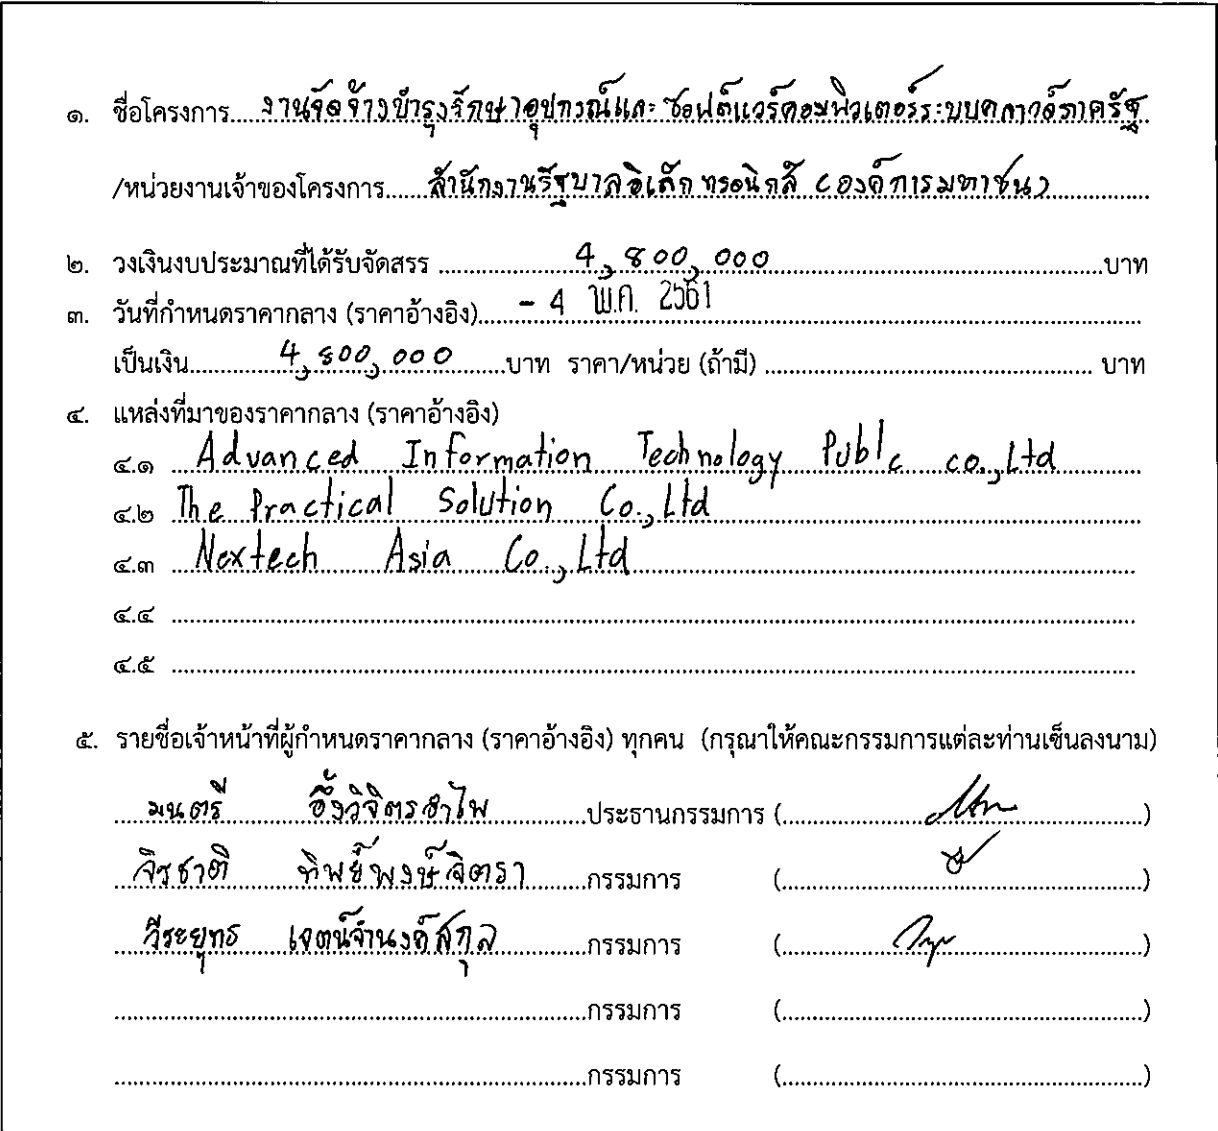 ๑. ชื่อโครงการ....งานจัดจ้างบำรุงรักษาอุปกรณ์และซอฟต์แวร์คอมพิวเตอร์ระบบคลาวด์ภาครัฐ
/หน่วยงานเจ้าของโครงการ......สำนักงานรัฐบาลอิเล็กทรอนิกส์ (องค์การมหาชน)
๒. วงเงินงบประมาณที่ได้รับจัดสรร ....4,800,000....บาท
๓. วันที่กำหนดราคากลาง (ราคาอ้างอิง)....- 4 พ.ค. 2561
เป็นเงิน....4,800,000....บาท ราคา/หน่วย (ถ้ามี) .... บาท
๔. แหล่งที่มาของราคากลาง (ราคาอ้างอิง)
๔.๑ Advanced Information Technology Publc co.,Ltd
๔.๒ The Practical Solution Co.,Ltd
๔.๓ Nextech Asia Co.,Ltd
๔.๔ ....
๔.๕ ....
๕. รายชื่อเจ้าหน้าที่ผู้กำหนดราคากลาง (ราคาอ้างอิง) ทุกคน (กรุณาให้คณะกรรมการแต่ละท่านเซ็นลงนาม)
มนตรี อึ้งวิจิตรอำไพ....ประธานกรรมการ (....)
จิรชาติ ทิพย์พงษ์จิตรา....กรรมการ (....)
วีระยุทธ เจตน์จำนงค์สกุล....กรรมการ (....)
....กรรมการ (....)
....กรรมการ (....)